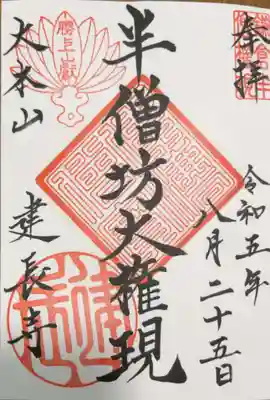 奉拝
令和五年
八月二十五日
半僧坊大権現
勝上山献
大本山
建長寺